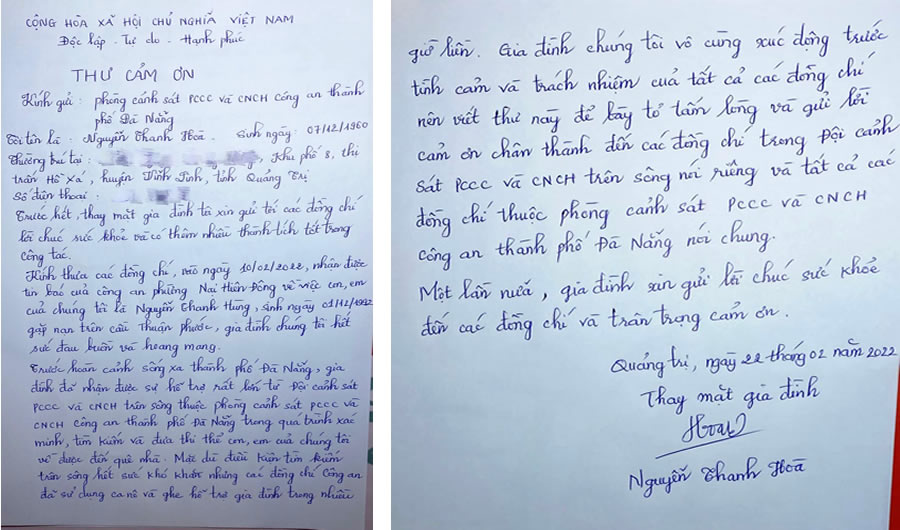 CỘNG HÒA XÃ HỘI CHỦ NGHĨA VIỆT NAM
Độc lập - Tự do - Hạnh phúc
THƯ CẢM ƠN
Kính gửi: phòng cảnh sát PCCC và CNCH công an thành
phố Đà Nẵng
Tôi tên là: Nguyễn Thanh Hoà. Sinh ngày: 07/12/1960
Thường trú tại: , Khu phố 8, thị
trấn Hồ Xá, huyện Vĩnh Linh, tỉnh Quảng Trị
Số điện thoại:
Trước hết, thay mặt gia đình tôi xin gửi tới các đồng chí
lời chúc sức khỏe và có thêm nhiều thành tích tốt trong
công tác.
Kính thưa các đồng chí, vào ngày 10/02/2022, nhận được
tin báo của công an phường Nại Hiên Đông về việc con, em
của chúng tôi là Nguyễn Thanh Hùng, sinh ngày 01/12/1992
gặp nạn trên cầu Thuận phước, gia đình chúng tôi hết
sức đau buồn và hoang mang.
Trước hoàn cảnh sống xa thành phố Đà Nẵng, gia
đình đã nhận được sự hỗ trợ rất lớn từ Đội cảnh sát
PCCC và CNCH trên sông thuộc phòng cảnh sát PCCC và
CNCH công an thành phố Đà Nẵng trong quá trình xác
minh, tìm kiếm và đưa thi thể con, em của chúng tôi
về được đến quê nhà. Mặc dù điều kiện tìm kiếm
trên sông hết sức khó khăn nhưng các đồng chí công an
đã sử dụng ca nô và ghe hỗ trợ gia đình trong nhiều
giờ liền. Gia đình chúng tôi vô cùng xúc động trước
tình cảm và trách nhiệm của tất cả các đồng chí
nên viết thư này để bày tỏ tấm lòng và gửi lời
cảm ơn chân thành đến các đồng chí trong Đội cảnh
sát PCCC và CNCH trên sông nói riêng và tất cả các
đồng chí thuộc phòng cảnh sát PCCC và CNCH
công an thành phố Đà Nẵng nói chung.
Một lần nữa, gia đình xin gửi lời chúc sức khỏe
đến các đồng chí và trân trọng cảm ơn.
Quảng trị, ngày 22 tháng 02 năm 2022
Thay mặt gia đình
Hoà
Nguyễn Thanh Hoà